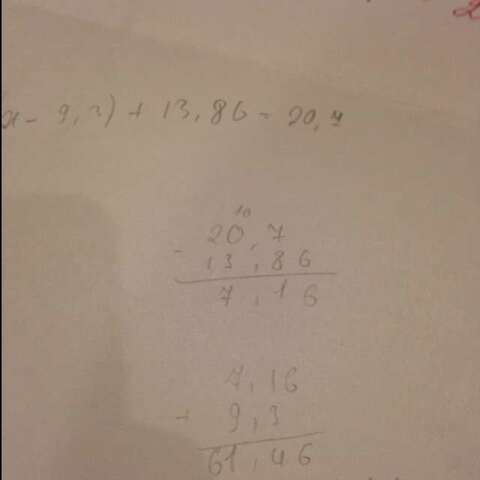 (x - 9,3) + 13,86 = 20,7
10
20,7
- 13,86
7,16
7,16
+ 9,3
61,46